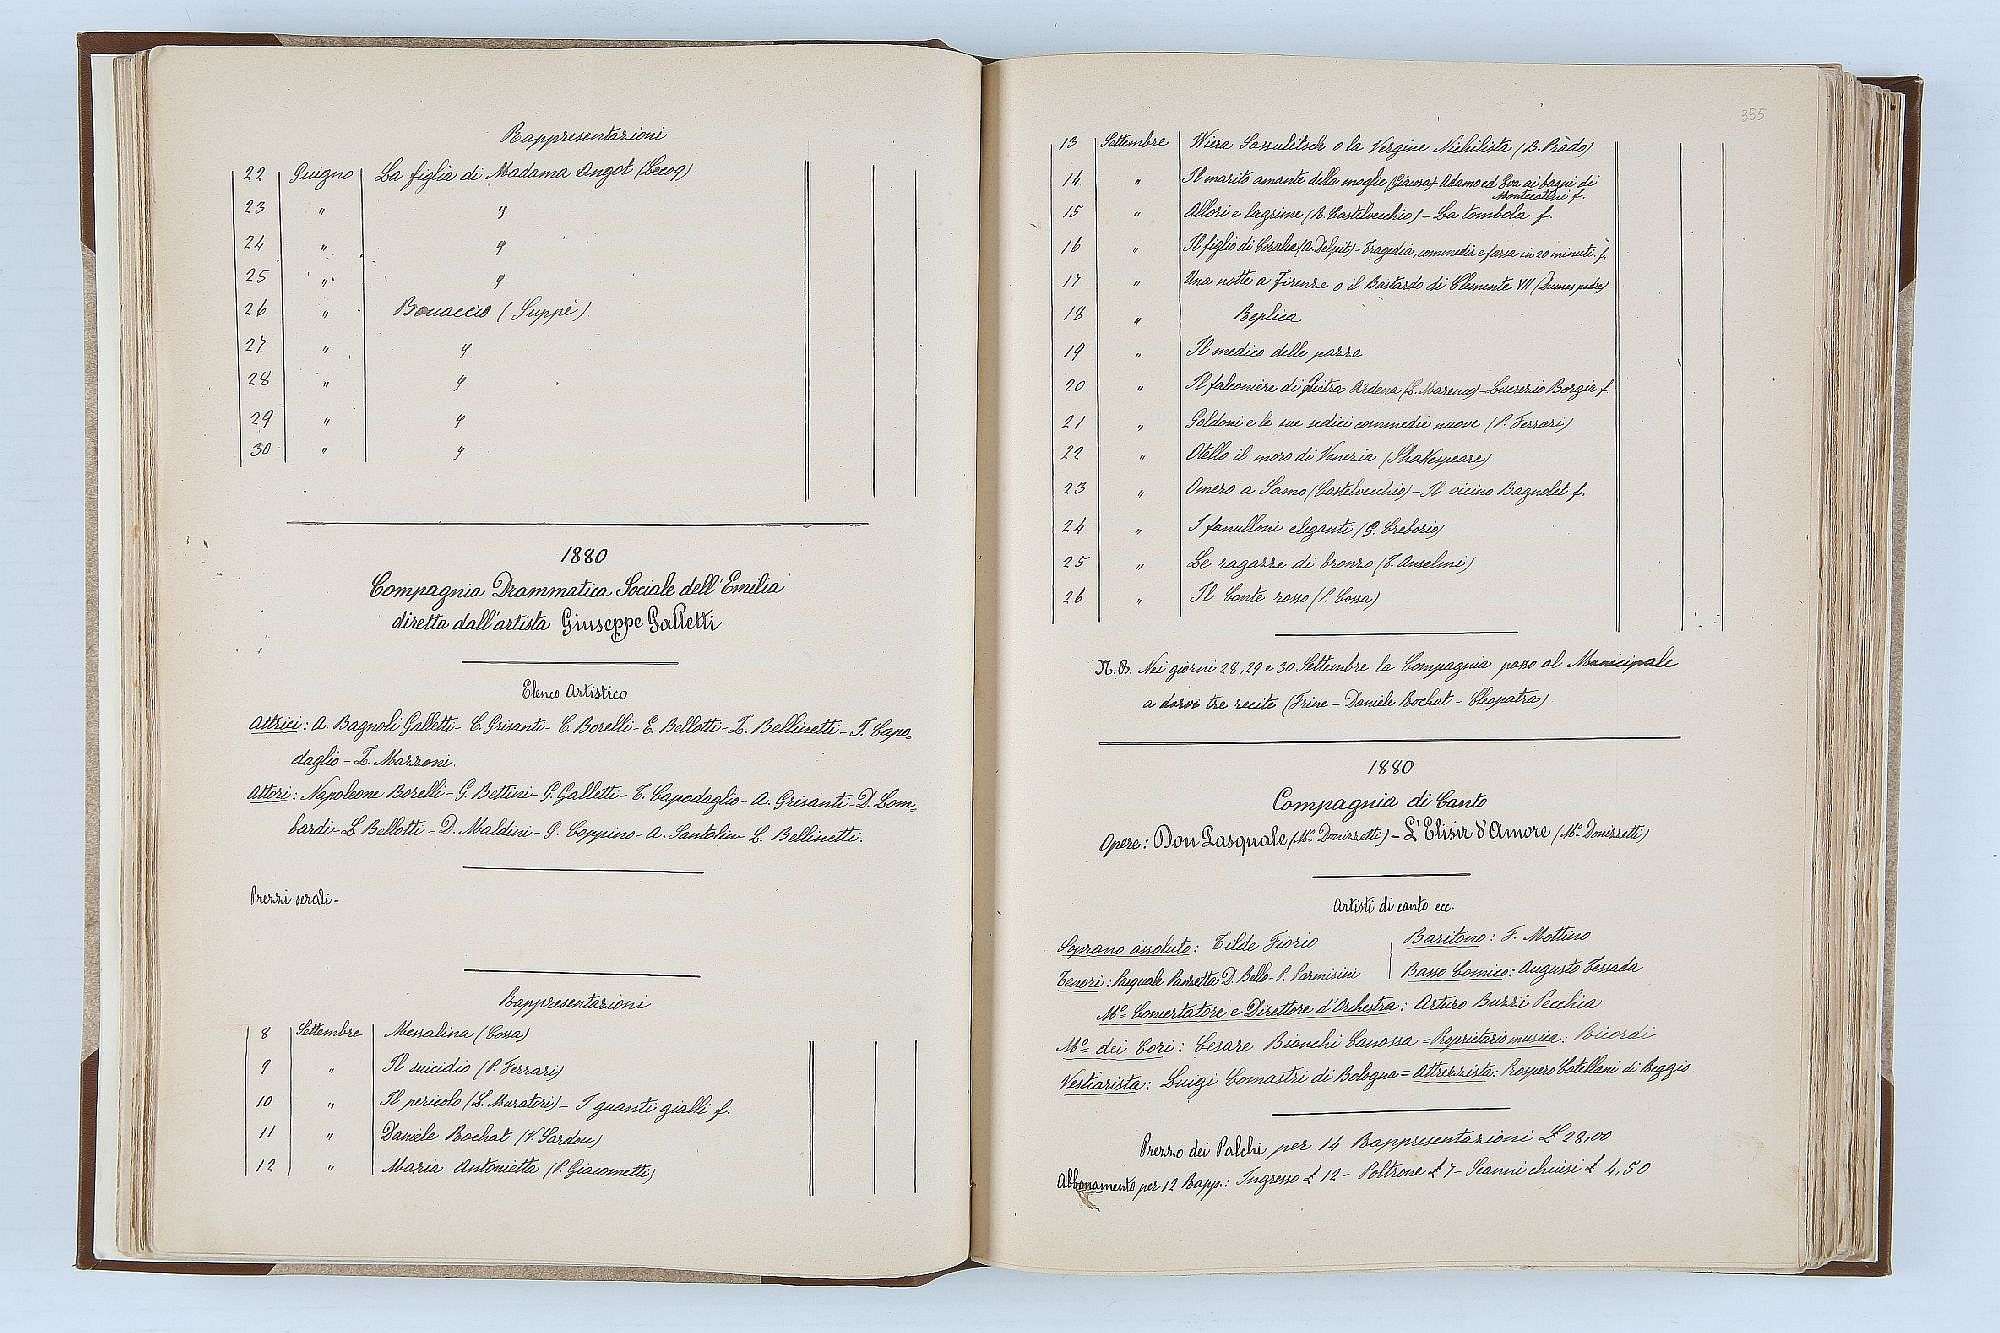 Rappresentazioni
22 Giugno La figlia di Madama Angot (Lecoq)
23 " "
24 " "
25 " "
26 " Boccaccio (Suppè)
27 " "
28 " "
29 " "
30 " "
1880
Compagnia Drammatica Sociale dell'Emilia
diretta dall'artista Giuseppe Galletti
Elenco Artistico
Attrici: A. Bagnoli Galletti - C. Grisanti - C. Borelli - E. Bellotti - Z. Bellinetti - F. Capo-
daglio - Z. Mazzoni.
Attori: Napoleone Borelli - G. Bettini - G. Galletti - T. Capodaglio - A. Grisanti - D. Lom-
bardi - L. Bellotti - D. Maldini - G. Coppino - A. Santolin L. Bellinetti.
Prezzi serali -
Rappresentazioni
8 Settembre Messalina (Cossa)
9 " Il suicidio (P. Ferrari)
10 " Il pericolo (L. Muratori) - I guanti gialli f.
11 " Daniele Rochat (V. Sardou)
12 " Maria Antonietta (P. Giacometti)
355
13 Settembre Wiera Sassulitsch o la Vergine Nichilista (B. Pràdo)
14 " Il marito amante della moglie (Giacosa) Adamo ed Eva ai bagni di
Montecatini f.
15 " Allori e lagrime (R. Castelvecchio) - La tombola f.
16 " Il figlio di Coralia (A. Delpit) - Tragedia, commedia e farsa in 20 minuti f.
17 " Una notte a Firenze o il Bastardo di Clemente VII (Dumas padre)
18 " Replica
19 " Il medico delle pazze
20 " Il falconiere di Pietra Ardena (L. Marenco) - Lucrezia Borgia f.
21 " Goldoni e le sue sedici commedie nuove (P. Ferrari)
22 " Otello il moro di Venezia (Shakespeare)
23 " Omero a Samo (Castelvecchio) - Il vicino Bagnolet f.
24 " I fanulloni eleganti (G. Creborio)
25 " Le ragazze di bronzo (F. Anselmi)
26 " Il Conte rosso (P. Cossa)
N.B. Nei giorni 28, 29 e 30 Settembre la Compagnia passo al Municipale
a darvi tre recite (Frine - Daniele Rochat - Cleopatra)
1880
Compagnia di Canto
Opere: Don Pasquale (Mo. Donizzetti) - L'Elisir d'Amore (Mo. Donizzetti)
Artisti di canto ecc.
Soprano assoluto: Tilde Fiorio
Baritono: F. Mottino
Tenori: Pasquale Panzetta D. Bello - P. Parmisini
Basso Comico: Augusto Fossada
Mo. Concertatore e Direttore d'Orchestra: Arturo Buzzi Pecchia
Mo. dei Cori: Cesare Bianchi Canossa = Proprietario musica: Ricordi
Vestiarista: Luigi Comastri di Bologna = Attrezzista: Prospero Catellani di Reggio
Prezzo dei Palchi per 14 Rappresentazioni £ 28,00
Abbonamento per 12 Rapp.: Ingresso £ 12 - Poltrone £ 7 - Scanni chiusi £ 4.50